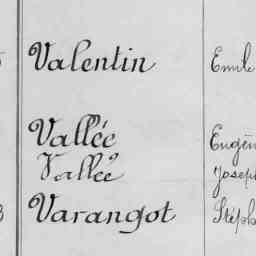 Valentin Emile
Vallée Eugène
Vallée Joseph
Varangot Stéph